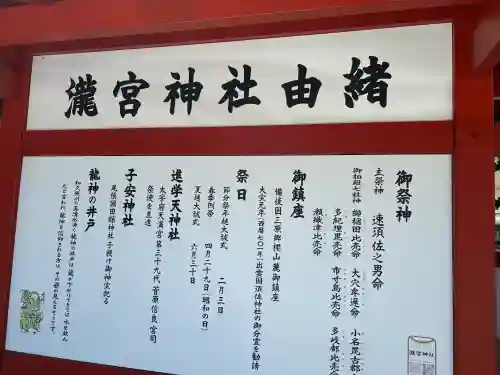 瀧宮神社由緒
御祭神
主祭神 速須佐之男命
御相殿七社神 櫛稲田比売命 大穴牟遅命 小名毘古那命
多紀理毘売命 市寸島比売命 多岐都比売命
瀬織津比売命
御鎮座
備後国三原郷櫻山麓御鎮座
大宝元年(西暦七〇一年)出雲国須佐神社の御分霊を勧請
祭日
節分祭年越大祓式 二月三日
春季例祭 四月二十九日(昭和の日)
夏越大祓式 六月三十日
進学天神社
太宰府天満宮第三十九代(菅原信良)宮司
祭儀を直送
子安神社
尾張国田縣神社 子授け御神宝祀る
龍神の井戸
瀧宮神社